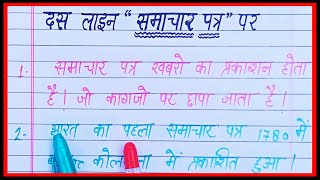 दस लाइन "समाचार पत्र" पर
1- समाचार पत्र खबरो का प्रकाशन होता
है। जो कागजो पर छापा जाता है।
2- भारत का पहला समाचार पत्र 1780 में
में प्रकाशित हुआ।